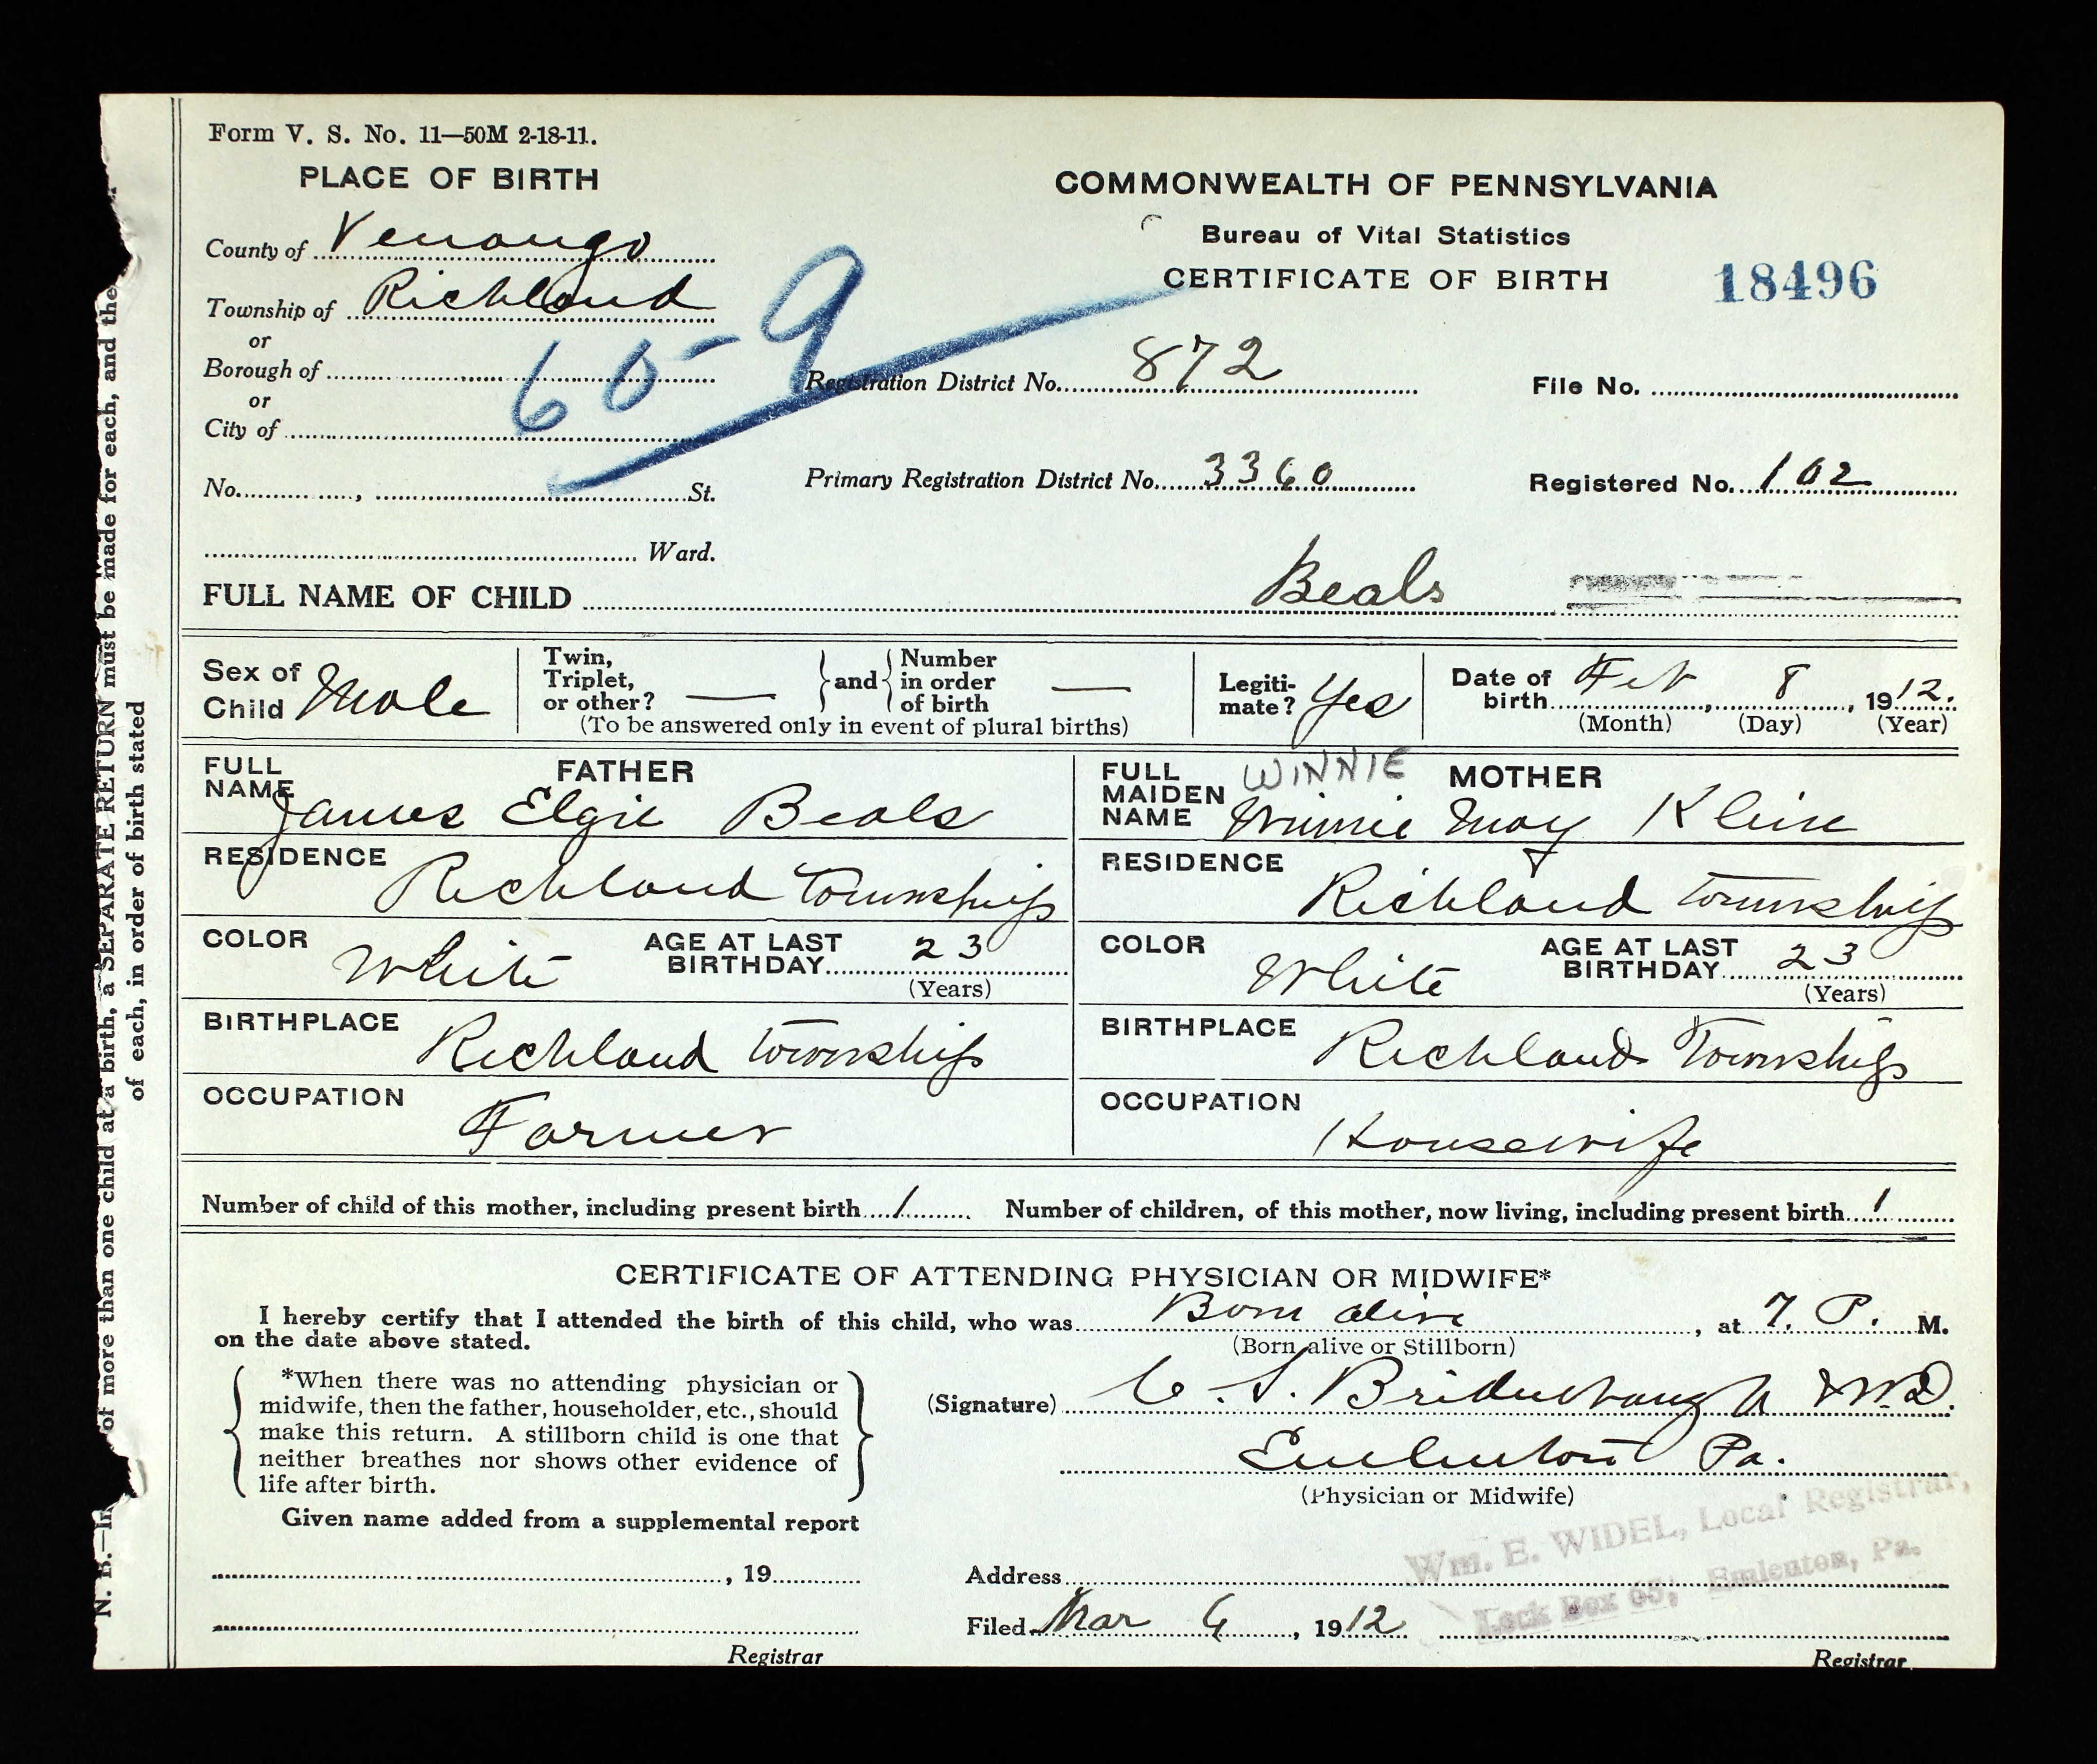 Form V. S. No. 11—50M 2-18-11.
PLACE OF BIRTH
County of Venango
Township of Richland
or
Borough of
or
City of
No. , St.
Ward.
60-9
COMMONWEALTH OF PENNSYLVANIA
Bureau of Vital Statistics
CERTIFICATE OF BIRTH
18496
Registration District No. 872
File No.
Primary Registration District No. 3360
Registered No. 102
FULL NAME OF CHILD Beals
Sex of Child Male
Twin, Triplet, or other? — and Number in order of birth —
(To be answered only in event of plural births)
Legiti-mate? Yes
Date of birth Feb 8, 1912.
(Month) (Day) (Year)
FATHER
FULL NAME James Elgie Beals
RESIDENCE Richland Township
COLOR White
AGE AT LAST BIRTHDAY 23
(Years)
BIRTHPLACE Richland Township
OCCUPATION Farmer
MOTHER
WINNIE
FULL MAIDEN NAME Minnie May Kline
RESIDENCE Richland Township
COLOR White
AGE AT LAST BIRTHDAY 23
(Years)
BIRTHPLACE Richland Township
OCCUPATION Housewife
Number of child of this mother, including present birth 1 Number of children, of this mother, now living, including present birth 1
CERTIFICATE OF ATTENDING PHYSICIAN OR MIDWIFE*
I hereby certify that I attended the birth of this child, who was Born alive, at 7. P. M.
on the date above stated.
(Born alive or Stillborn)
*When there was no attending physician or
midwife, then the father, householder, etc., should
make this return. A stillborn child is one that
neither breathes nor shows other evidence of
life after birth.
(Signature) C. S. Bridenbaugh M.D.
Emlenton Pa.
(Physician or Midwife)
Given name added from a supplemental report
, 19
Registrar
Address
Wm. E. WIDEL, Local Registrar,
Lock Box 65, Emlenton, Pa.
Filed Mar 6, 1912
Registrar
of more than one child at a birth, a SEPARATE RETURN must be made for each, and the
of each, in order of birth stated